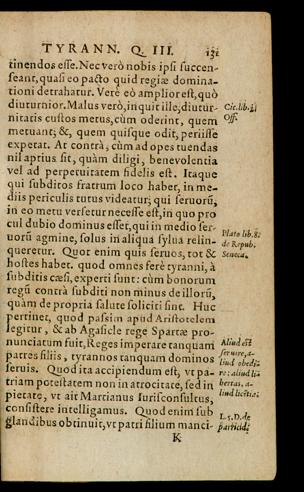 TYRANN. Q. III. 131
tinendos esse. Nec verò nobis ipsi succen-
seant, quasi eo pacto quid regiæ domina-
tioni detrahatur. Verè eò amplior est, quò
diuturnior. Malus verò, inquit ille, diutur-
nitatis custos metus, cùm oderint, quem
metuant; &, quem quisque odit, periisse
expetat. At contrà; cùm ad opes tuendas
nil aptius sit, quàm diligi, benevolentia
vel ad perpetuitatem fidelis est. Itaque
qui subditos fratrum loco habet, in me-
diis periculis tutus videatur; qui seruorũ,
in eo metu versetur necesse est, in quo pro
cul dubio dominus esset, qui in medio ser-
uorũ agmine, solus in aliqua sylua relin-
queretur. Quot enim quis seruos, tot &
hostes habet. quod omnes ferè tyranni, à
subditis cæsi, experti sunt: cùm bonorum
regũ contrà subditi non minus de illorũ,
quàm de propria salute soliciti sint. Huc
pertinet, quod passim apud Aristotelem
legitur, & ab Agasicle rege Spartæ pro-
nunciatum fuit, Reges imperare tanquam
patres filiis, tyrannos tanquam dominos
seruis. Quod ita accipiendum est, vt pa-
triam potestatem non in atrocitate, sed in
pietate, vt ait Martianus Iurisconsultus,
consistere intelligamus. Quod enim sub
glandibus obtinuit, vt patri filium manci-
K
Cic. lib. 2
Off.
Plato lib. 8.
de Repub.
Seneca.
Aliud est
seruire, a-
liud obedi-
re: aliud li-
bertas, a-
liud licẽtia.
L. 5. D. de
parricid.